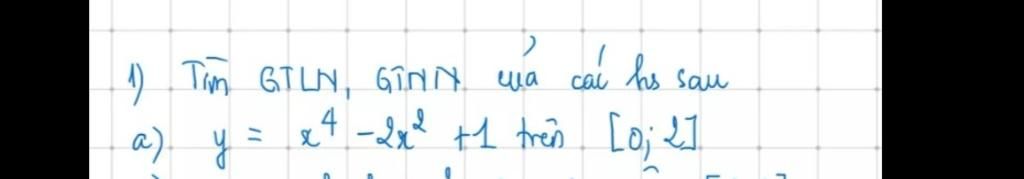 1) Tìm GTLN, GTNN của các hs sau
a) y = x⁴ - 2x² + 1 trên [0; 2]